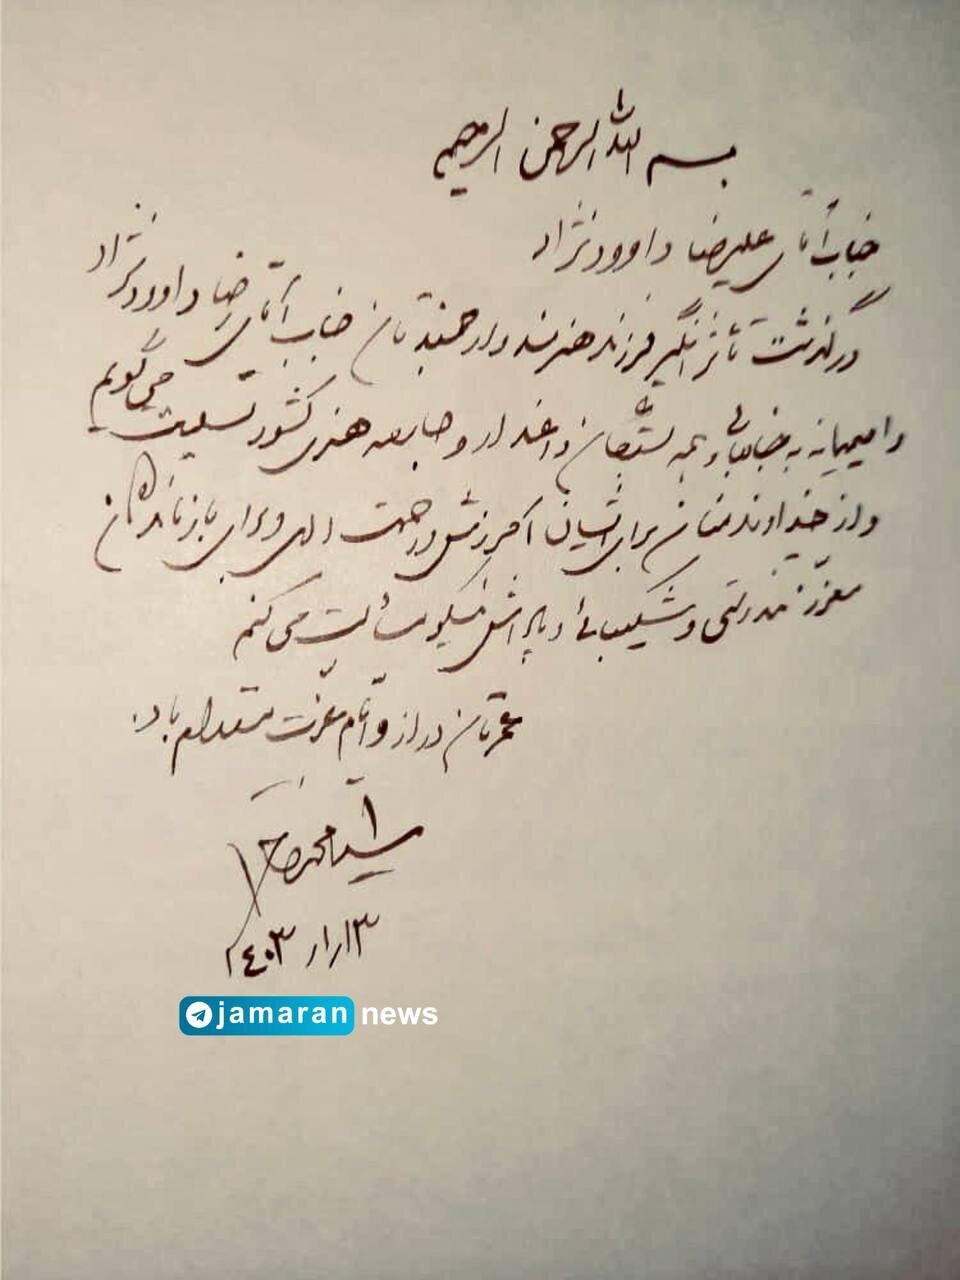 بسم الله الرحمن الرحیم
جناب آقای علیرضا داوودنژاد
درگذشت تأثرانگیز فرزند هنرمند و ارجمندتان جناب آقای رضا داوودنژاد
را صمیمانه به جنابعالی و همه بستگان داغدار و جامعه هنری کشور تسلیت می‌گویم
و از خداوند منان برای ایشان آمرزش و رحمت الهی و برای بازماندگان
معزز تندرستی و شکیبائی و پاداش نیکو مسئلت می‌کنم
عمرتان دراز و ایام عزت مستدام باد.
سید محمد خاتمی
۱۴۰۳/۱/۱۳
jamaran news